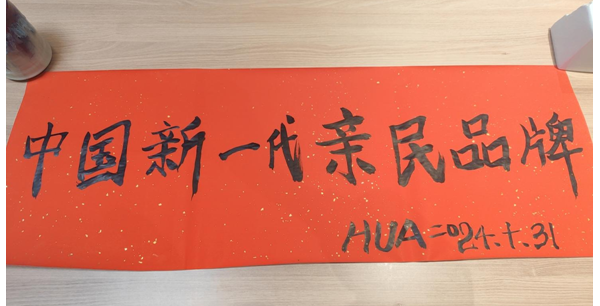 中国新一代亲民品牌
HUA 二024.十.31